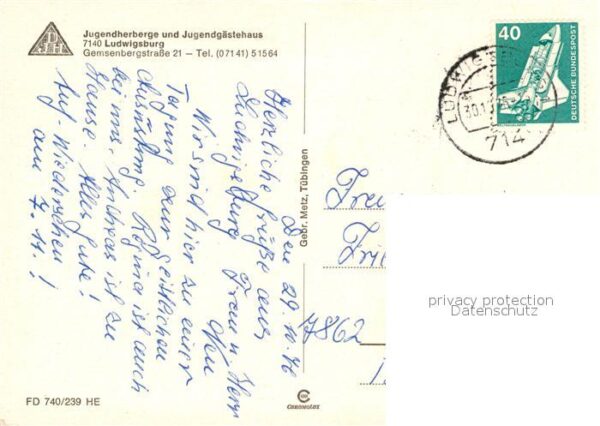 DJH
Jugendherberge und Jugendgästehaus
7140 Ludwigsburg
Gemsenbergstraße 21 — Tel. (07141) 51564
Den 29.10.80
Herzliche Grüße aus
Ludwigsburg
Wir sind hier zu einer
Tagung zur zeitlichen
Regina ist auch
bei uns, Andreas ist zu
Hause. Alles Gute!
Auf Wiedersehen
am 7.11.!
Gebr. Metz, Tübingen
40
DEUTSCHE BUNDESPOST
LUDWIGS
30.1
714
7862
privacy protection
Datenschutz
FD 740/239 HE
CHROMOLUX